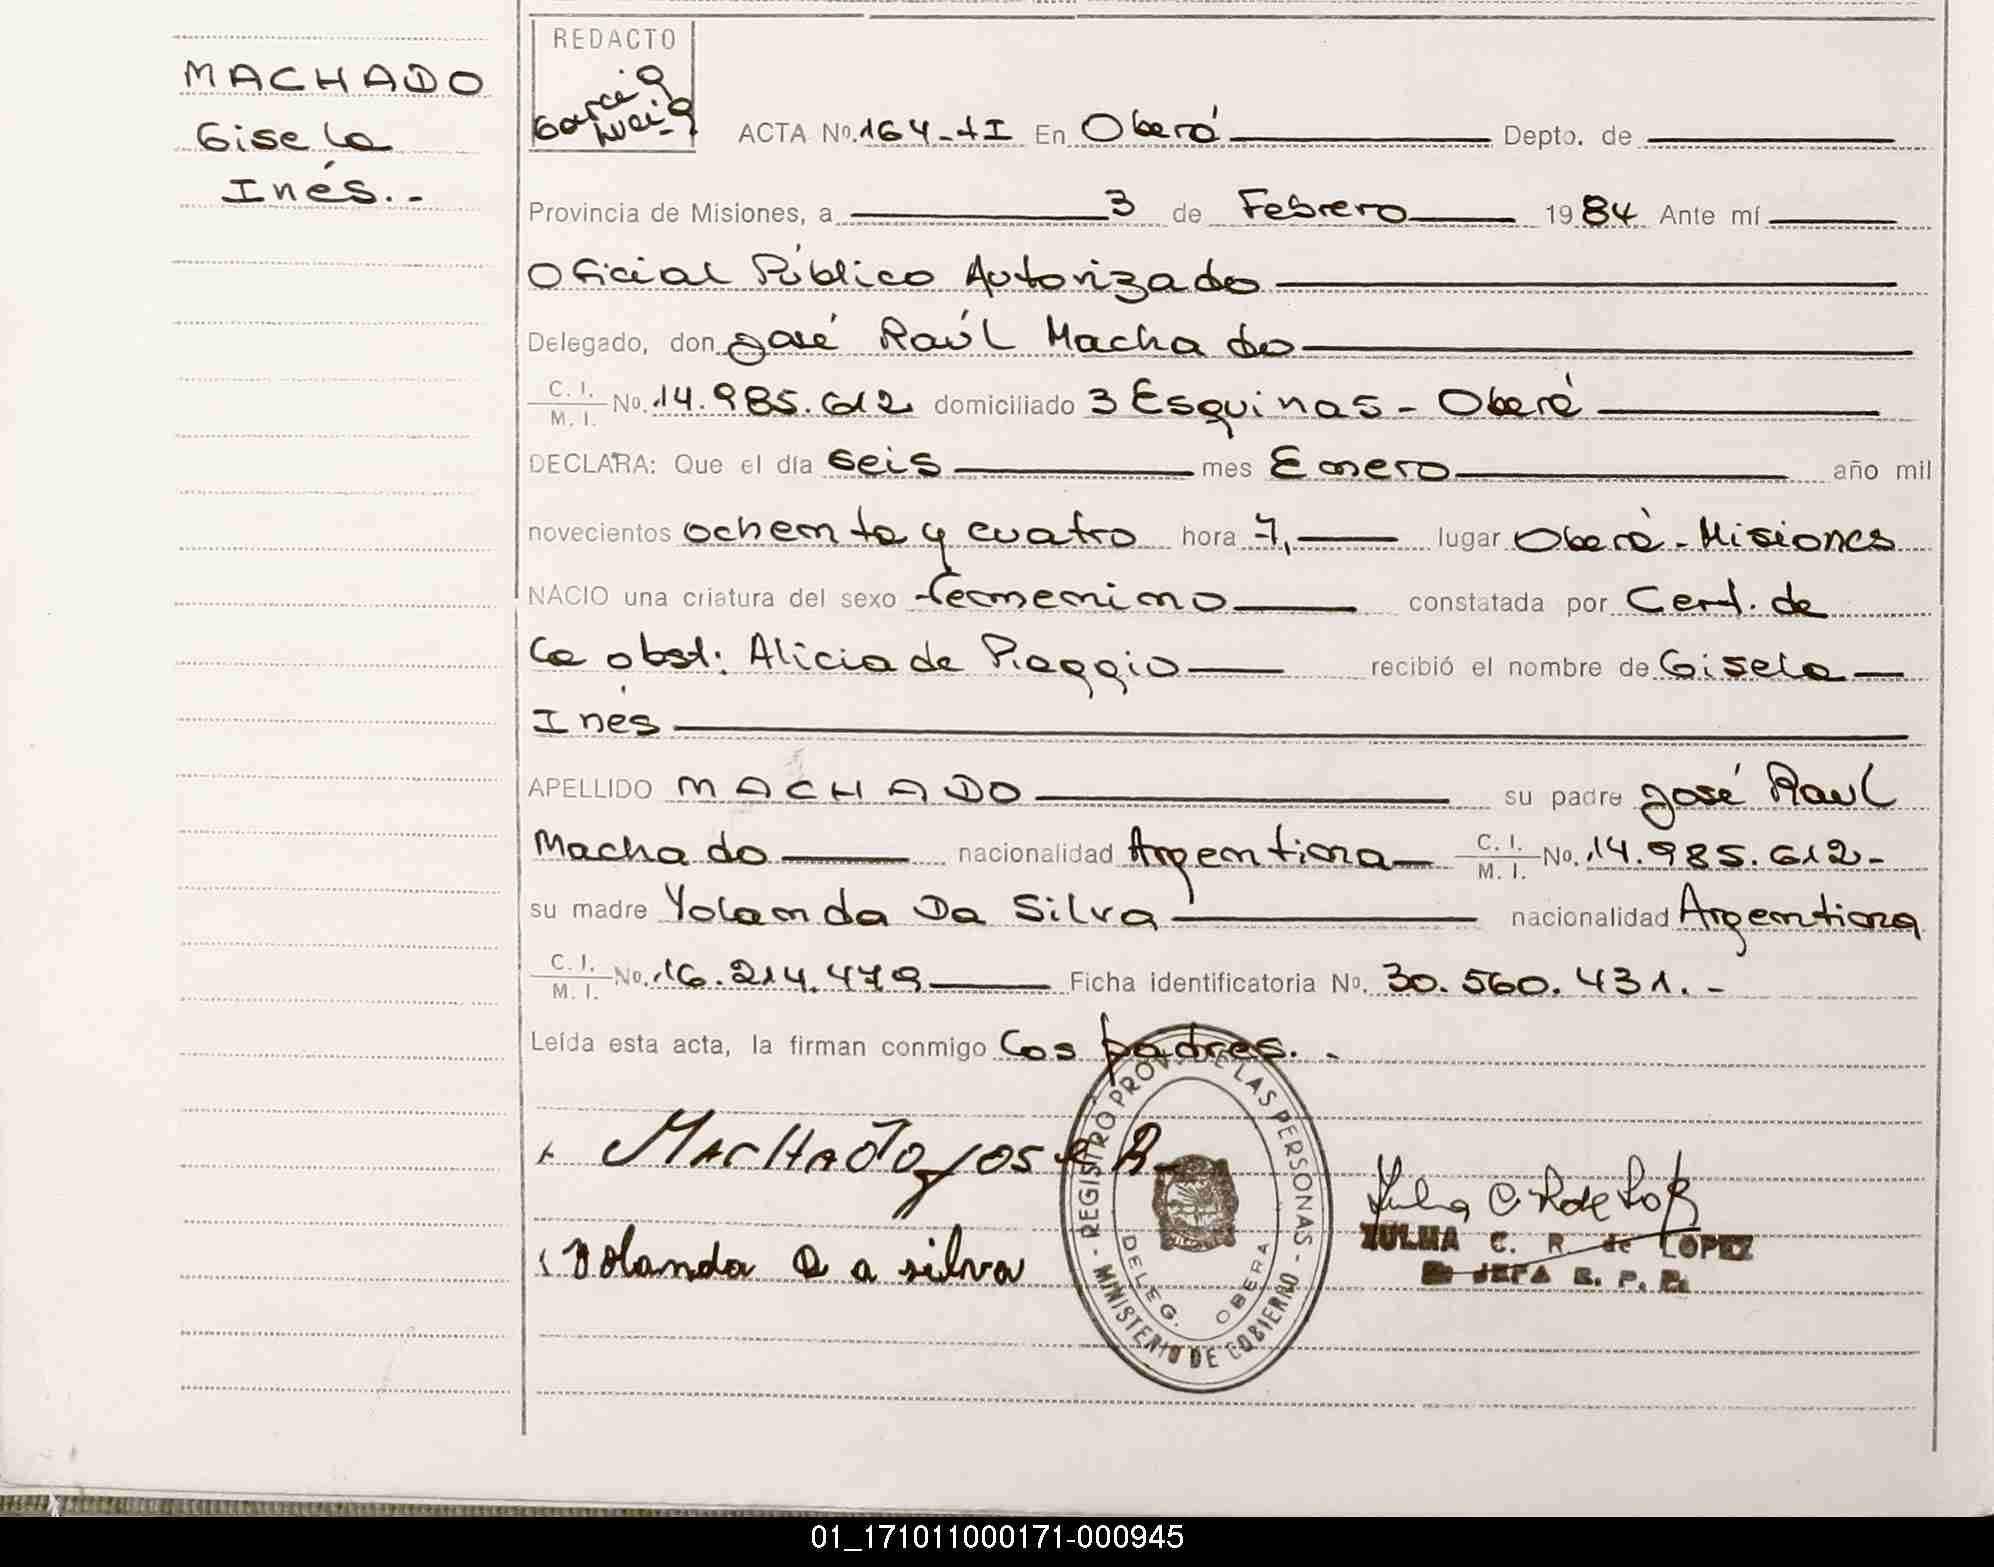 MACHADO
Gisela
Inés.-
REDACTO
García
ACTA No. 164-tI En Oberá Depto. de
Provincia de Misiones, a 3 de Febrero 1984 Ante mí
Oficial Público Autorizado
Delegado, don José Raúl Machado
C. I.
M. I.
No. 14.985.612 domiciliado 3 Esquinas - Oberá
DECLARA: Que el día seis mes Enero año mil
novecientos ochenta y cuatro hora 7, lugar Oberá - Misiones
NACIO una criatura del sexo femenino constatada por Cert. de
la obst: Alicia de Piaggio recibió el nombre de Gisela
Inés
APELLIDO MACHADO su padre José Raul
Machado nacionalidad Argentina C. I. M. I. No. 14.985.612-
su madre Yolanda Da Silva nacionalidad Argentina
C. I.
M. I.
No. 16.214.479 Ficha identificatoria No. 30.560.431.-
Leída esta acta, la firman conmigo los padres.-
Machado José R.
Yolanda Da silva
REGISTRO PROV. DE LAS PERSONAS - MINISTERIO DE GOBIERNO -
DELEG. OBERA
ZULMA C. R. de LOPEZ
JEFA R. P. P.
01_171011000171-000945